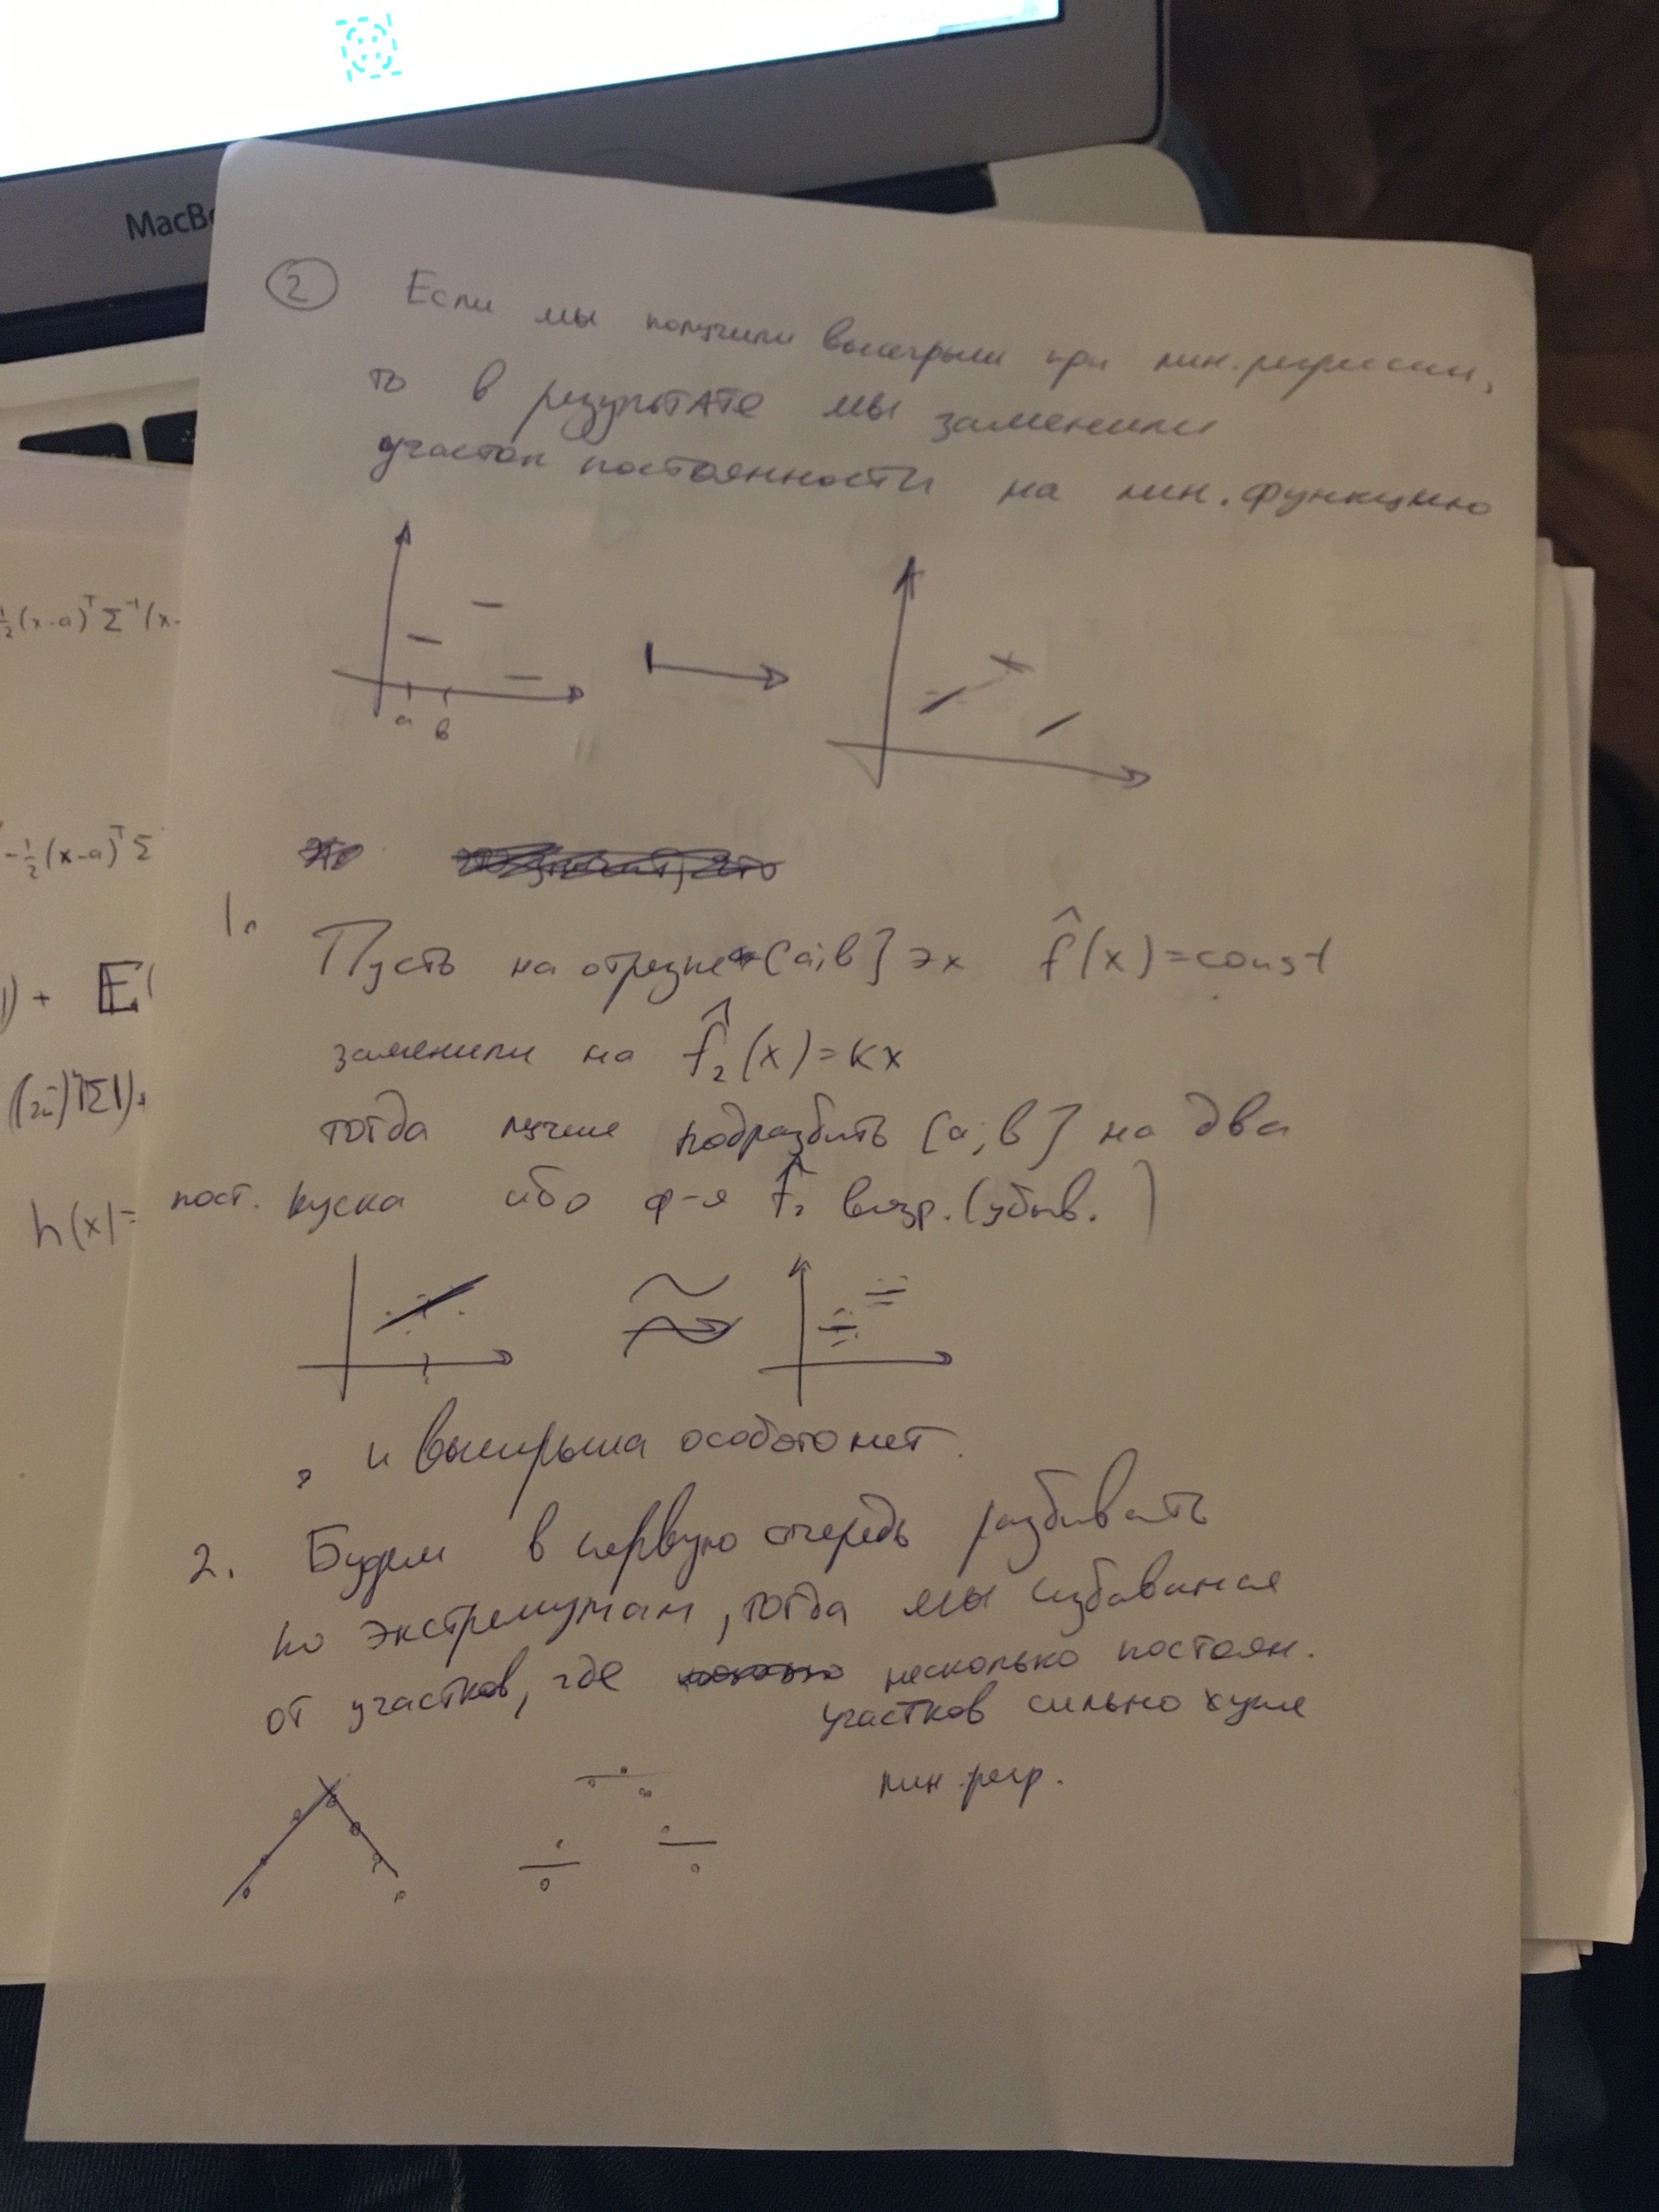 MacBo
② Если мы получили выигрыш при лин. регрессии,
то в результате мы заменили
участок постоянности на лин. функцию
a
b
1.
Пусть на отрезке [a;b] эх f̂(x)=const
заменили на f̂₂(x)=kx
тогда лучше подразбить [a;b] на два
пост. куска ибо ф-я f̂₂ возр. (убыв. )
, и выигрыша особого нет.
2. Будем в первую очередь разбивать
по экстремумам, тогда мы избавимся
от участков, где несколько постоян.
участков сильно хуже
лин. регр.
½(x-a)ᵀΣ⁻¹(x-
-½(x-a)ᵀΣ
) + E(
h(x)=